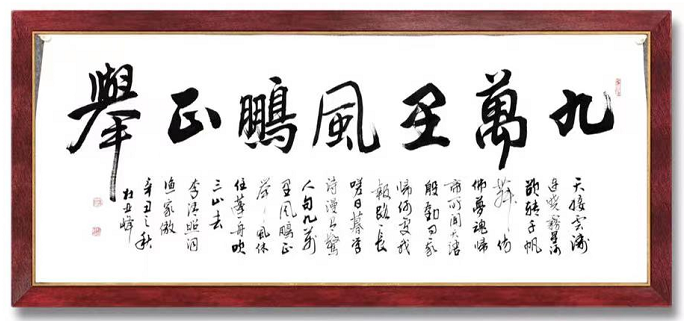 九萬里風鵬正舉
天接雲濤
連曉霧星河
欲轉千帆
舞仿
佛夢魂歸
帝所聞天語
殷勤問我
歸何處我
報路長
嗟日暮學
詩漫有驚
人句九萬
里風鵬正
舉風休
住蓬舟吹
三山去
李清照詞
漁家傲
辛丑之秋